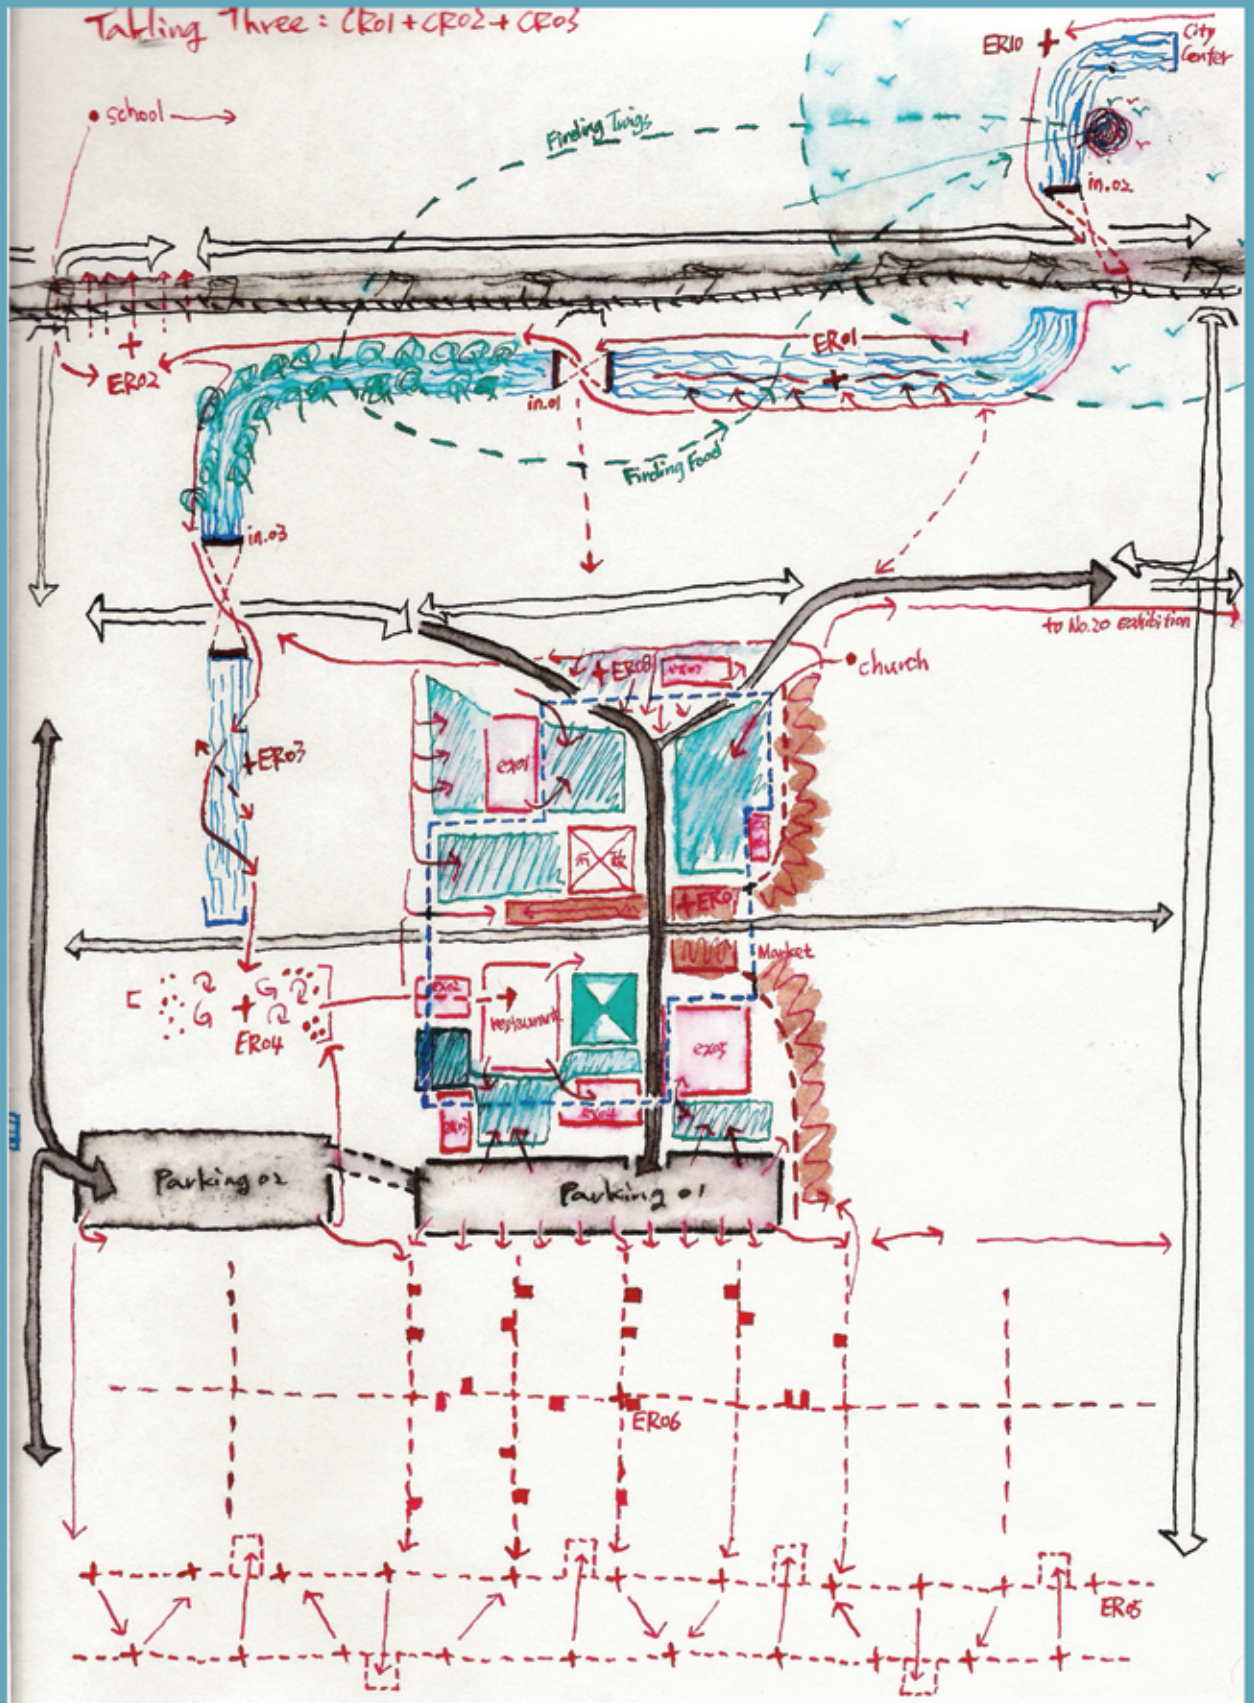 Tabling Three: CR01+CR02+CR03
ER10
City
Center
school
Finding Twigs
in.02
ER01
ER02
in.01
Finding Food
in.03
to No.20 exhibition
+ER08
church
ex01
+ER03
+ER0
Market
restaurant
ER04
ex05
ex04
Parking 02
Parking 01
ER06
ER05